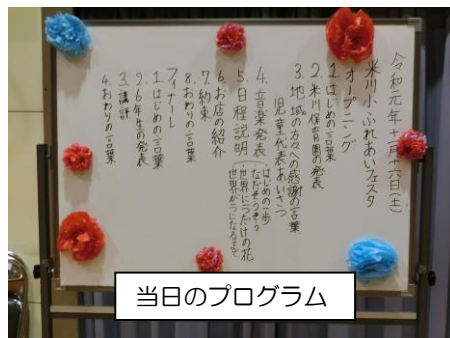 令和元年十一月十六日(土)
米川小ふれあいフェスタ
オープニング
1.はじめの言葉
2.米川保育園の発表
3.地域の方々への感謝の言葉
児童代表あいさつ
4.音楽発表
・はじめの一歩
・世界に一つだけの花
・世界が一つになるまで
5.日程説明
6.お店の紹介
7.約束
8.おわりの言葉
フィナーレ
1.はじめの言葉
2.6年生の発表
3.講評
4.おわりの言葉
当日のプログラム